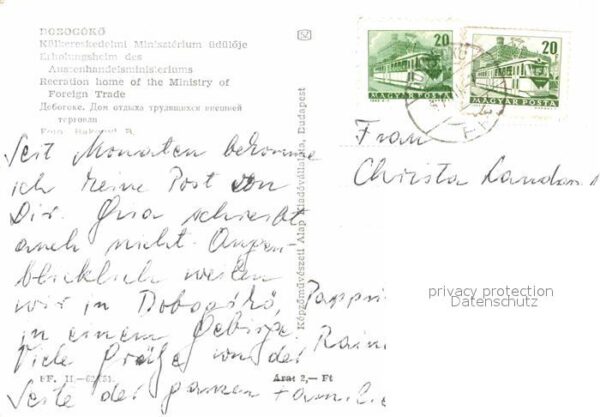 DOBOGÓKŐ
Külkereskedelmi Minisztérium üdülője
Erholungsheim des
Aussenhandelsministeriums
Recration home of the Ministry of
Foreign Trade
Добогокё. Дом отдыха трудящихся внешней
торговли
Foto: Bakonyi B.
20
MAGYAR POSTA
20
MAGYAR POSTA
Frau
Christa
privacy protection
Datenschutz
Képzőművészeti Alap Kiadóvállalata, Budapest
Seit Monaten bekomme
ich keine Post von
Dir. Gisa schreibt
auch nicht. Augen-
blicklich weilen
wir in Dobogókő,
in einem Gebirge.
Viele Grüße von der
Seite der ganzen Familie
Ára: 2,— Ft